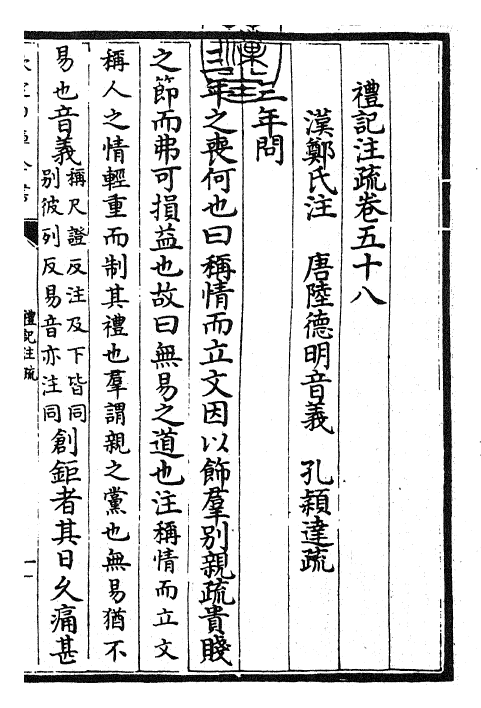 禮記注疏卷五十八
漢鄭氏注 唐陸德明音義 孔穎達疏
三年問
三年之喪何也曰稱情而立文因以飾羣別親疏貴賤
之節而弗可損益也故曰無易之道也注稱情而立文
稱人之情輕重而制其禮也羣謂親之黨也無易猶不
易也音義
稱尺證反注及下皆同
別彼列反易音亦注同
創鉅者其日久痛甚
禮記注疏
一